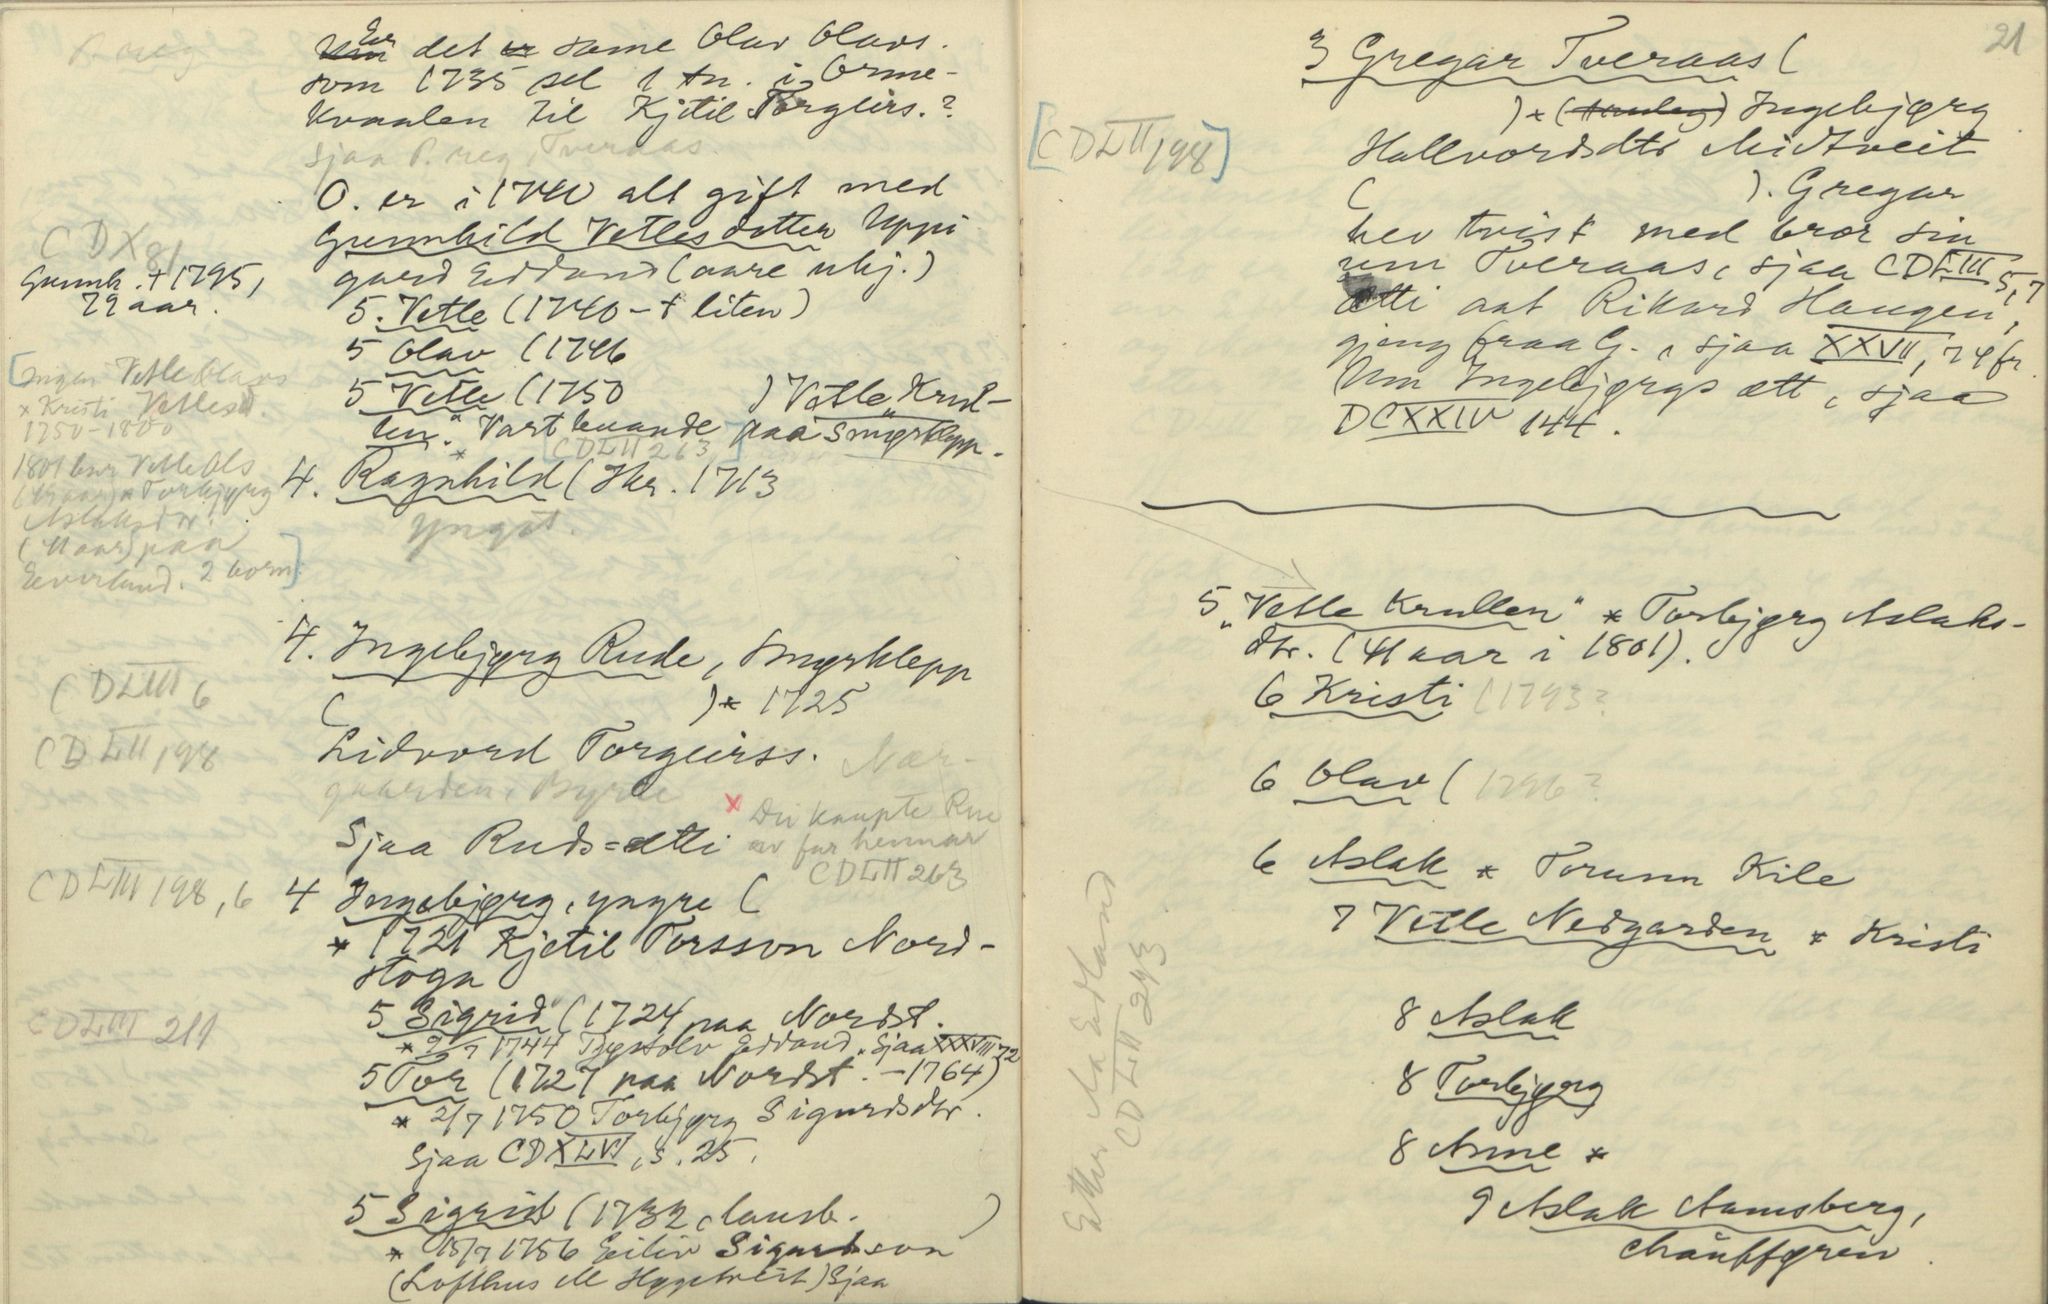 Er det same Olav Olavs.
som 1735 sel 1 tn. i Orme-
kvaalen til Kjetil Torgeirs.?
Sjaa P. reg. Tveraas.
O. er i 1740 alt gift med
Gunnhild Vetlesdotter Uppi-
gard Eddand (aare ukj.)
CDX81
Gunnh. + 1795,
79 aar.
5. Vetle (1740 - + liten)
5 Olav (1746
5 Vetle (1750 ) Vetle „Krul-
len". Vart buande paa Smyrklepp.
[CDLII 263]
[Ingen Vetle Olavs
* Kristi Vetlesd.
1750-1800
1801 bur Vetle Ols
* Torbjørg
Aslaksdtr.
(41 aar) paa
2 born]
4. Ragnhild (Hkr. 1713
yngst.
4. Ingebjørg Rude, Smyrklepp
( ) * 1725
CDLIII 6
CDLII 198
Lidvord Torgeirss. Nør-
gaarden, Byrte
Sjaa Ruds=ætti
x Dei kaupte Rue
av far hennar
CDLII 263
CDLIII 198, 6
4 Ingebjørg, yngre (
* 1721 Kjetil Torsson Nord-
stoga
5 Sigrid (1724 paa Nordst.
CDLIII 211
* 1744 Eddand, Sjaa XXXVIII 72
5 Tor (1727 paa Nordst. -1764)
* 2/7 1750 Torbjørg Sigurdsdtr.
Sjaa CDXLVI, s. 25.
5 Sigrid (1732, )
* 15/7 1756 Eiliv Sigurdson
(Lofthus Sjaa
21
3 Gregar Tveraas (
) * Ingebjørg
[CDLII 198]
Hallvordsdtr Midtveit
( ). Gregar
hev tvist med bror sin
um Tveraas, sjaa CDLIII 5, 7
Ætti aat Rikard Haugen,
gjeng fraa G., sjaa XXVII, 74 fr.
Um Ingebjørgs ætt, sjaa
DCXXIV 144.
5 „Vetle Krullen" * Torbjørg Aslaks-
dtr. (41 aar i 1801).
6 Kristi (1793?
6 Olav (1796?
6 Aslak * Torunn Kile
7 Vetle Nedgarden * Kristi
8 Aslak
8 Torbjørg
8 Anne *
9 Aslak Aamsberg,
chauffören
CDLII 243